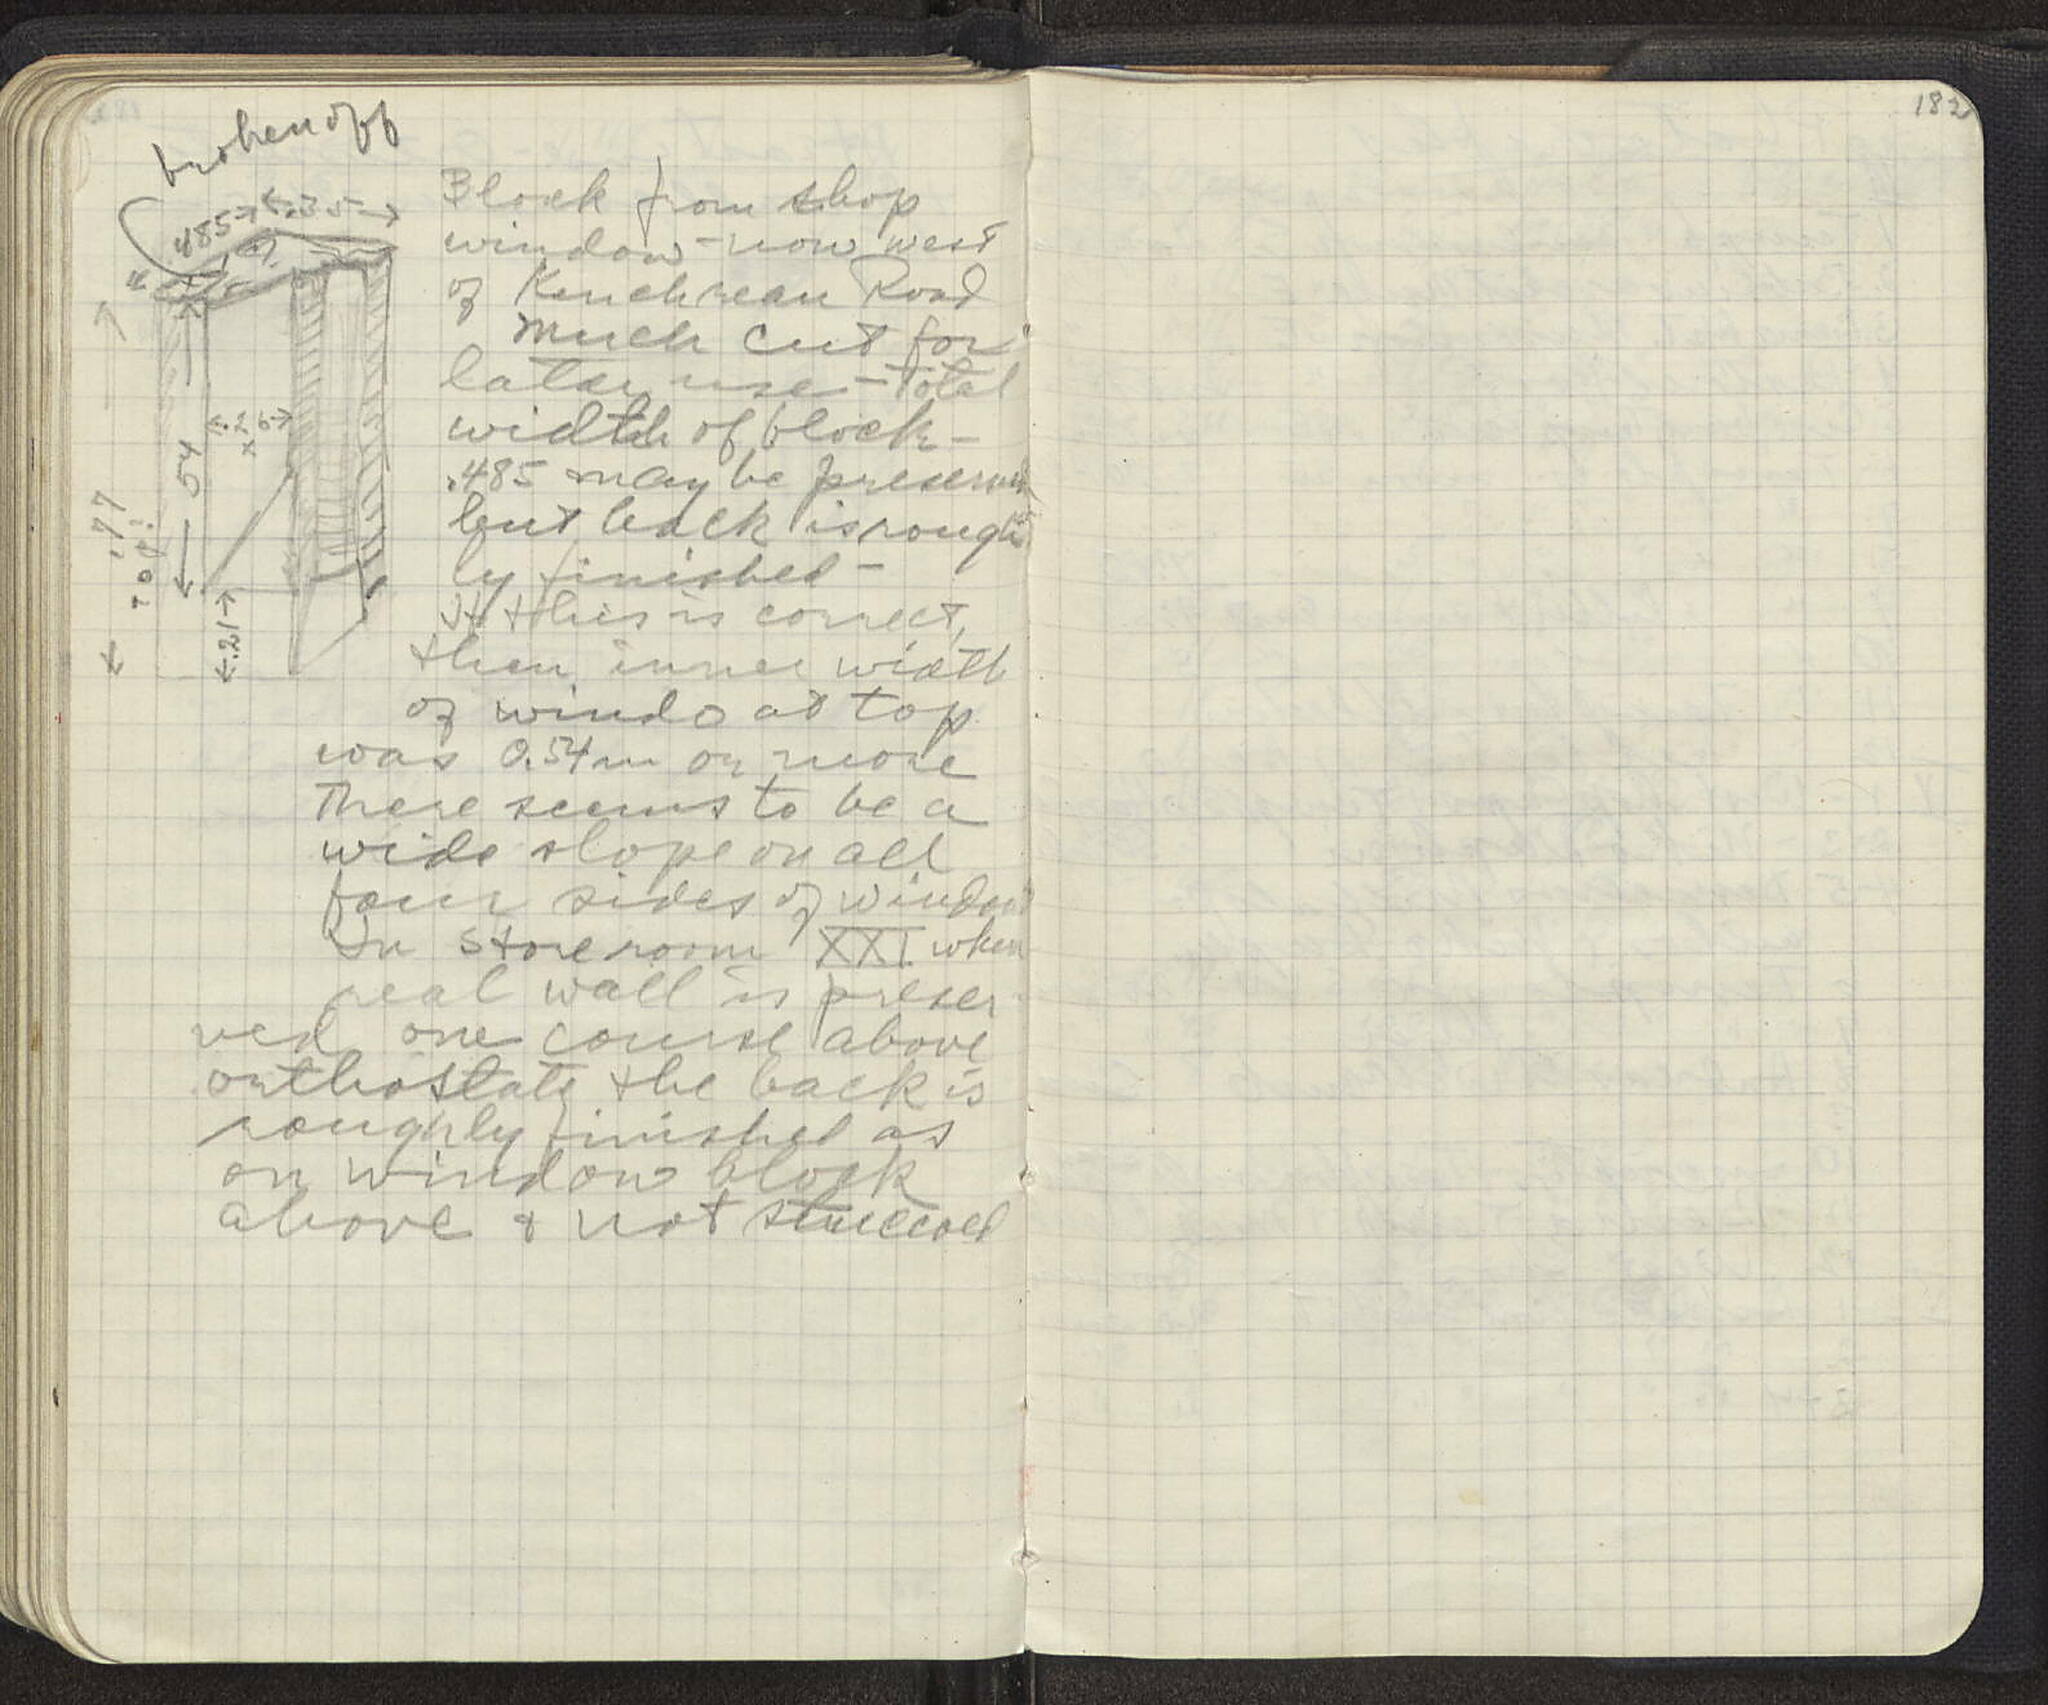 broken off
.485
.35
.26
x
.54
.77
to p.?
.21
Block from shop
window - now west
of Kenchrean Road
Much cut for
later use - Total
width of block -
.485 may be preserved
but back is rough
ly finished -
If this is correct,
then inner width
of windo at top
was 0.54m or more
There seems to be a
wide slope on all
four sides of window
In storeroom XXI. when
real wall is preser-
ved one course above
orthostate the back is
roughly finished as
on window block
above & not stuccoed
182